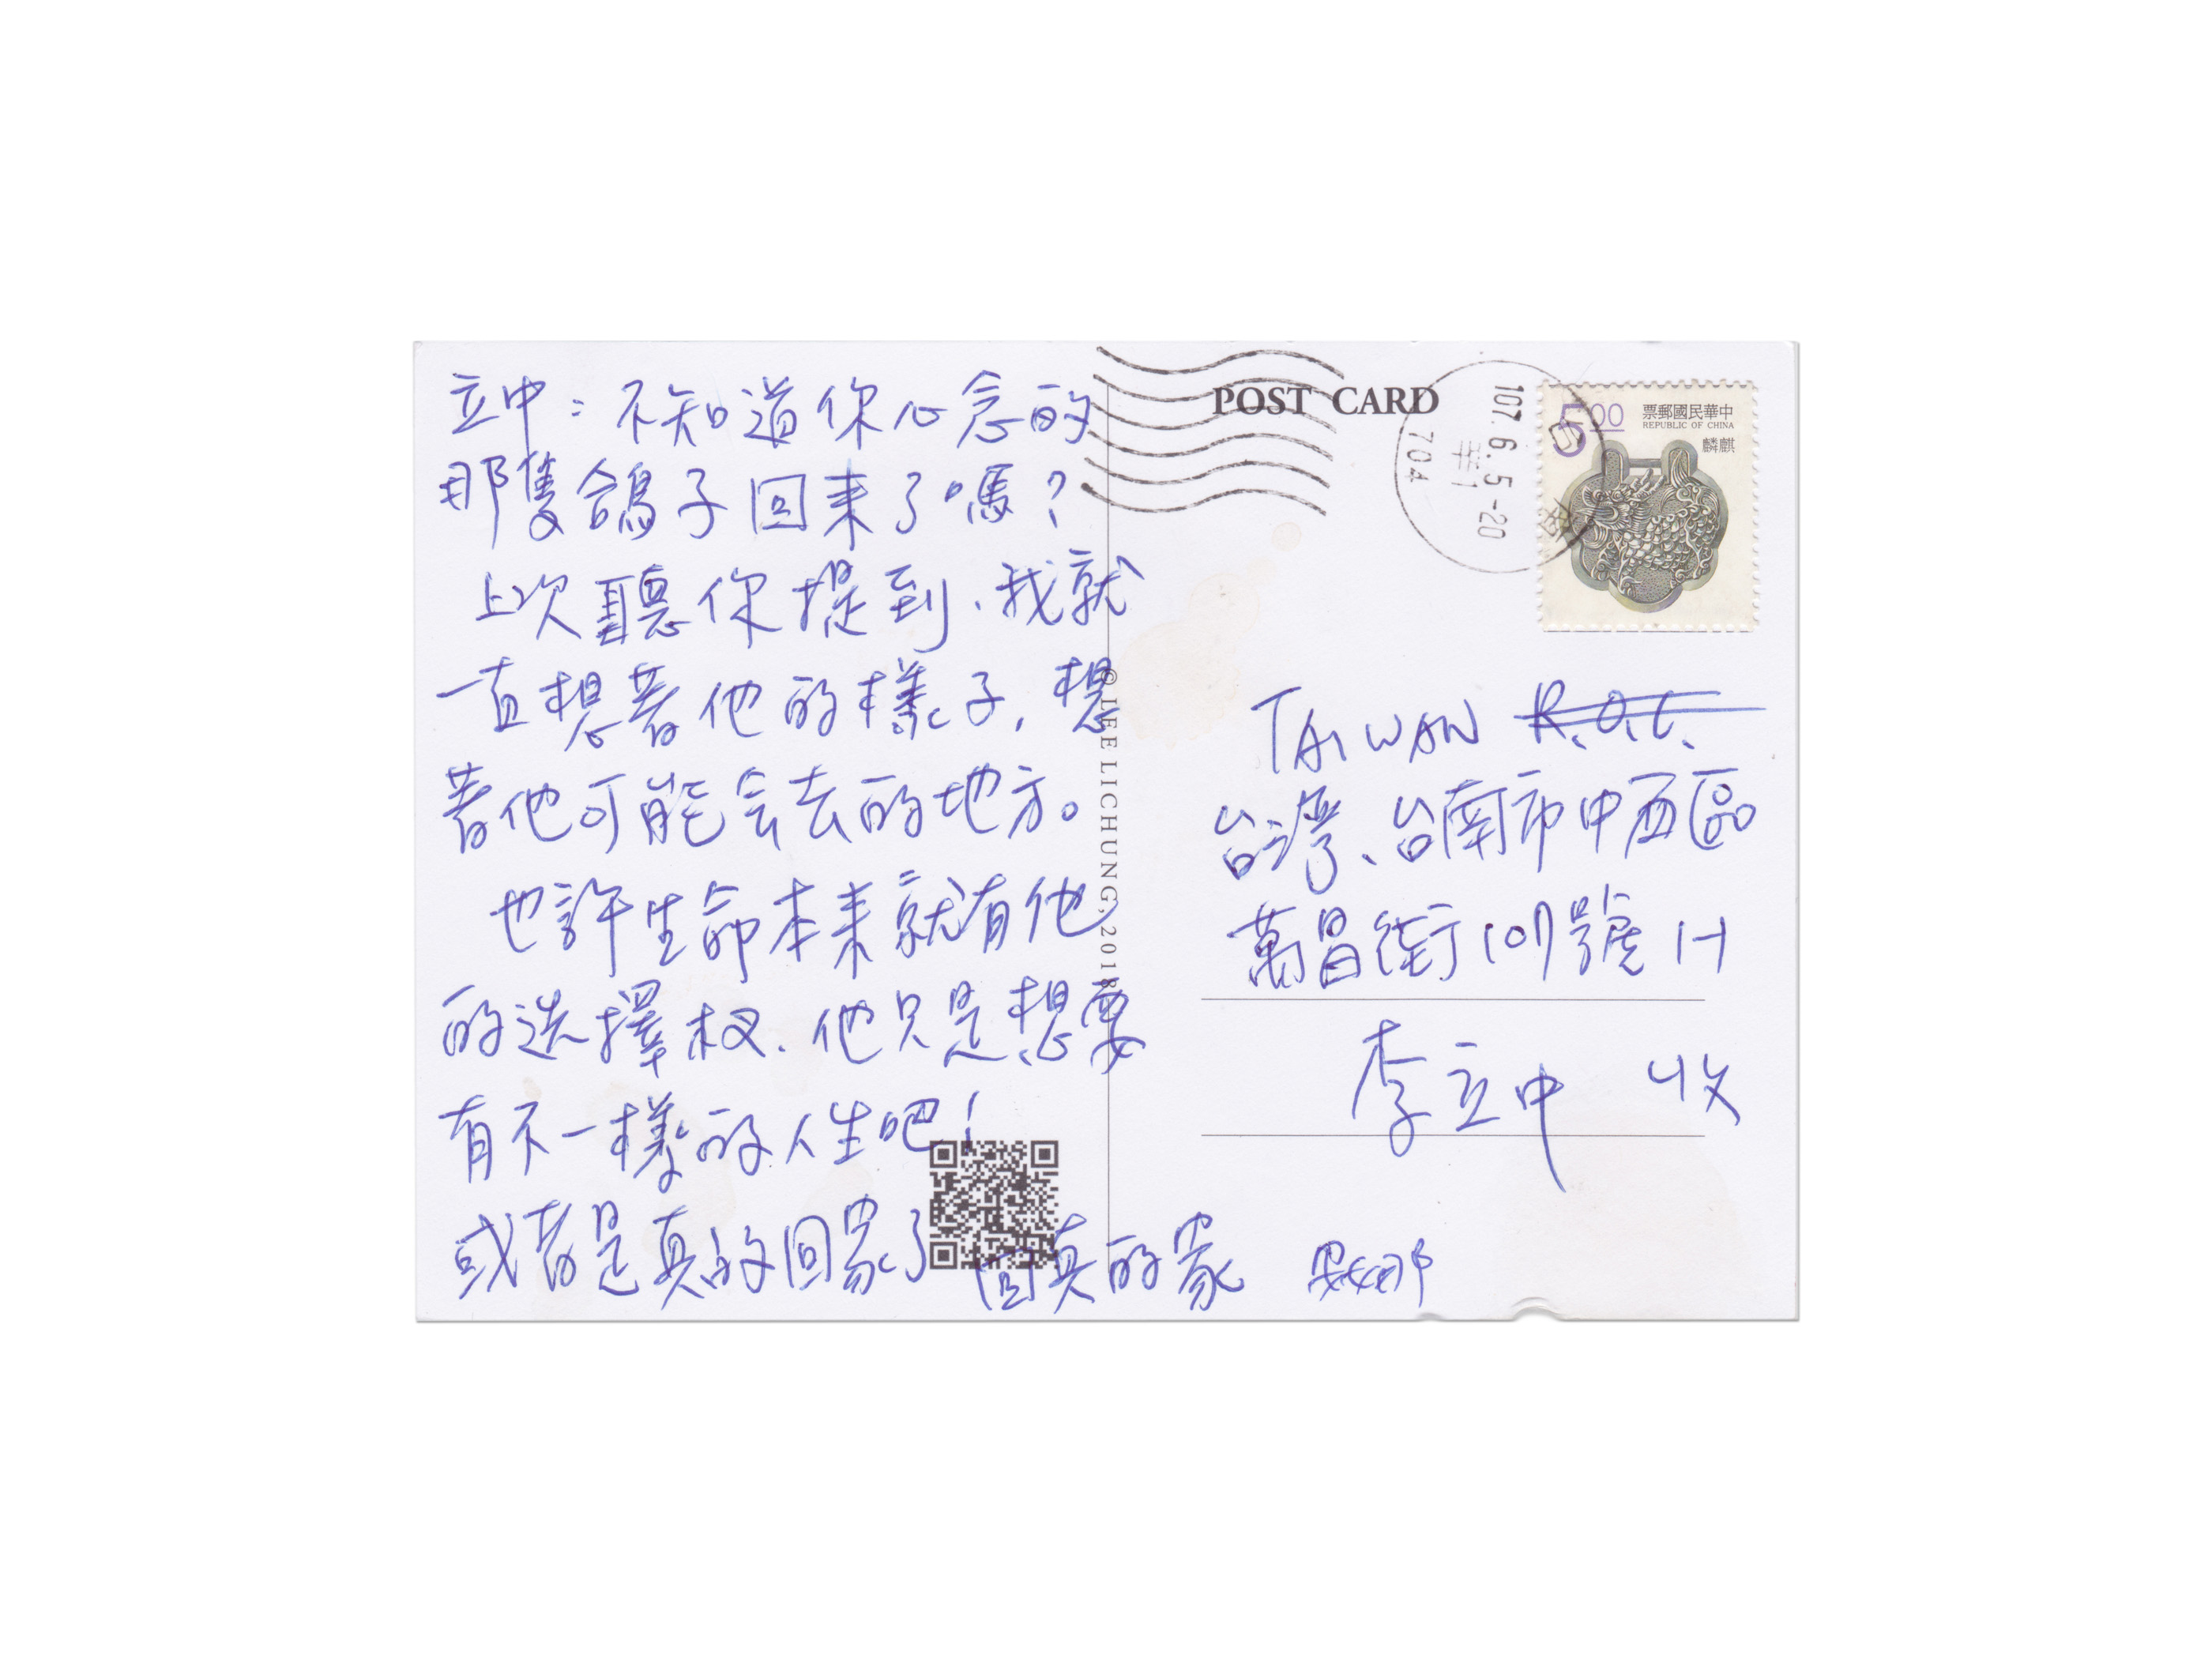 立中：不知道你心念的
那隻鴿子回来了嗎？
上次聽你提到、我就
一直想著他的樣子，想
著他可能会去的地方。
也許生命本来就有他
的选擇权、他只是想要
有不一樣的人生吧！
或者是真的回家了 回真的家
POST CARD
107.6.5-20
704
5.00
票郵國民華中
REPUBLIC OF CHINA
麟麒
© LEE LICHUNG, 2018
TAIWAN R.O.C.
台灣、台南市中西區
萬昌街107號 1-1
李立中 收